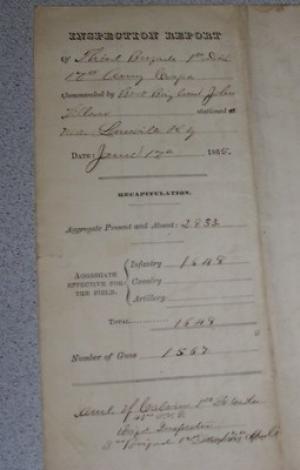 INSPECTION REPORT
Of Third Brigade 1st Div
17th Army Corps
Commanded by Bvt Brig Genl John
Tillson stationed at
near Louisville Ky
DATE: June 17th 1865.
RECAPITULATION.
Aggregate Present and Absent: 2852
AGGREGATE EFFECTIVE FOR THE FIELD. Infantry 1648
Cavalry
Artillery
TOTAL 1648
Number of Guns 1567
of 1st
Brigd Inspector
3rd Brigad 1st